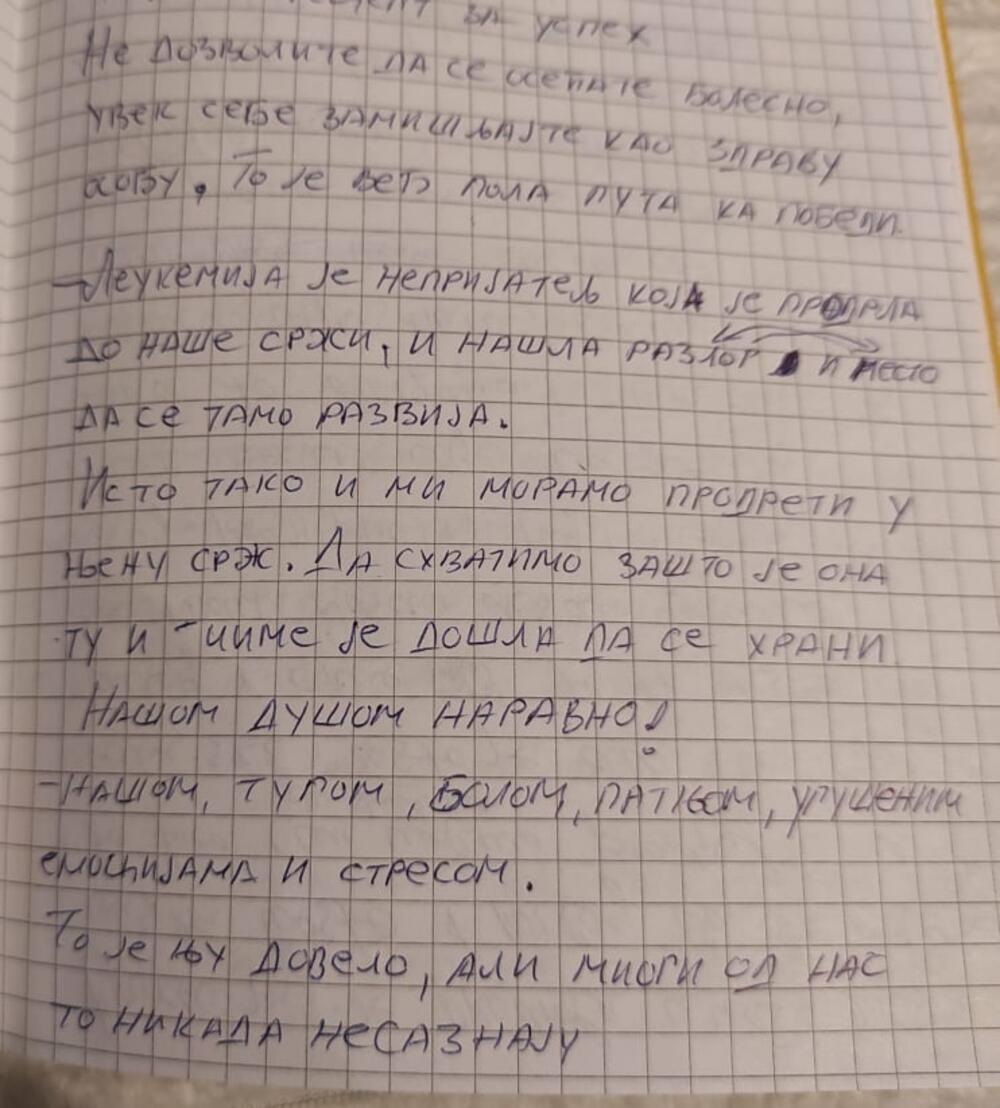 за успех
Не дозволите да се осећате болесно,
увек себе замишљајте као здраву
особу, То је већ пола пута ка победи.
-Леукемија је непријатељ која је продрла
до наше сржи, и нашла разлог и место
да се тамо развија.
Исто тако и ми морамо продрети у
њену срж. Да схватимо зашто је она
ту и чиме је дошла да се храни
Нашом душом наравно!
-нашом, тугом, болом, патњом, угушеним
емоцијама и стресом.
То је њу довело, али многи од нас
то никада несазнају